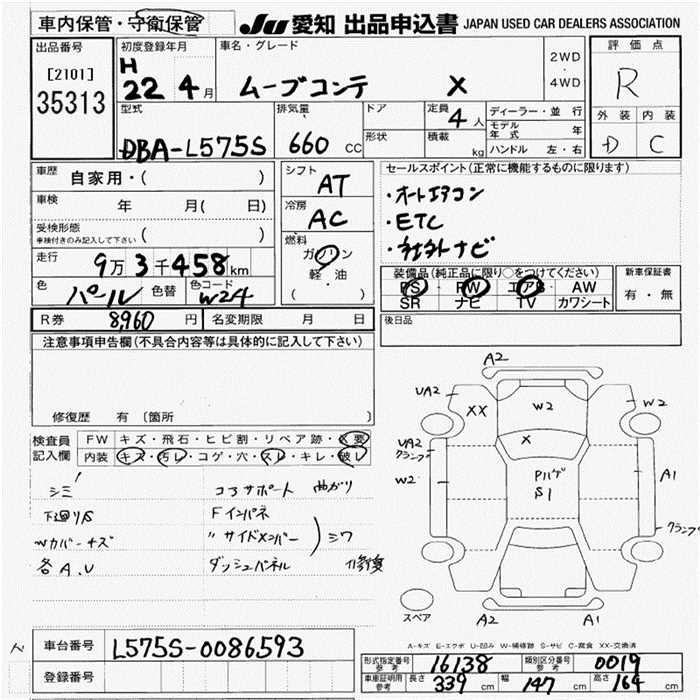 車内保管・守衛保管
JU 愛知 出品申込書 JAPAN USED CAR DEALERS ASSOCIATION
出品番号
[2101]
35313
初度登録年月
H
22 4月
車名・グレード
ムーブコンテ X
2WD
・
4WD
評価点
R
外装 内装
D C
型式
DBA-L575S
排気量
660 CC
ドア
形状
定員 4人
積載 kg
ディーラー・並行
モデル年式 年
ハンドル 左・右
車歴 自家用・( )
車検 年 月( 日)
受検形態
車検付きのみ記入して下さい ( )
走行 9万3千458km
色 パール 色替 色コード W24
シフト
AT
冷房
AC
燃料
ガソリン
・
軽・油
( )
セールスポイント(正常に機能するものに限ります)
・オートエアコン
・ETC
・社外ナビ
装備品(純正品に限り○をつけてください)
PS・PW・エアB・AW
SR ナビ TV カワシート
新車保証書
有・無
R券 8,960円 名変期限 月 日
後日品
注意事項申告欄(不具合内容等は具体的に記入して下さい)
修復歴 有 〔箇所 〕
検査員記入欄
FW キズ・飛石・ヒビ割・リペア跡・X要
内装 キズ・汚レ・コゲ・穴・スレ・キレ・破レ
シミ
下廻りS
Wカバーキズ
各A.U
コアサポート 曲がり
Fインパネ
〃サイドメンバー )シワ
ダッシュパネル 修復
A2
UA2
XX
W2
W2
UA2
クランプ
X
W2
Pハゲ
S1
A1
クランプ
A2
A1
スペア
A-キズ E-エクボ U-凹み W-補修跡 S-サビ C-腐食 XX-交換済
車台番号 L575S-0086593
登録番号
形式指定番号 参考 16138 類別区分番号 参考 0019
車庫証明用 参考 長さ 339cm 幅 147cm 高さ 164cm